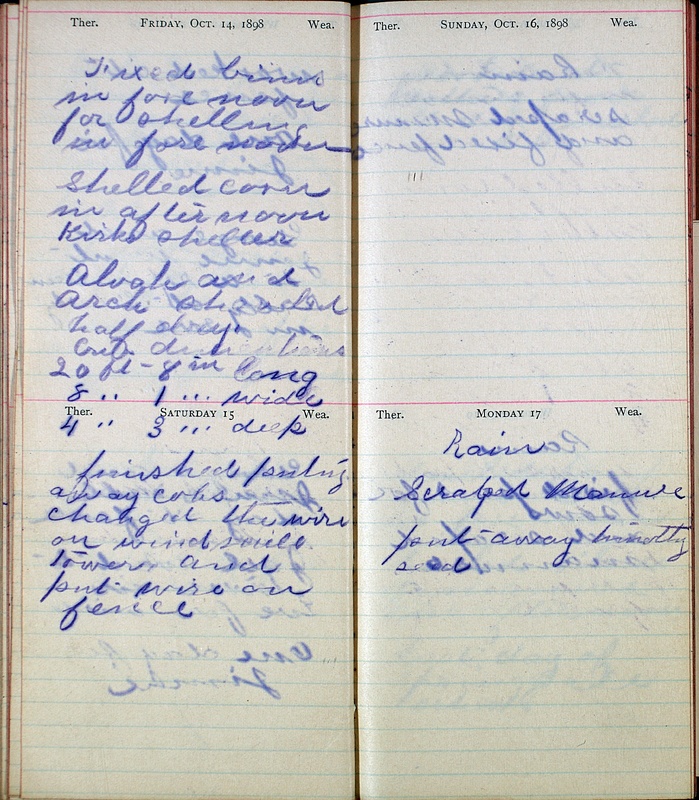 Ther. FRIDAY, OCT. 14, 1898 Wea.
Fixed binn
in fore noon
for shelling
in fore noon
Shelled corn
in after noon
Kirks sheller
and
Arch
half day
Crib
20 ft - 8 in long
8 " 1 " wide
Ther. SATURDAY 15 Wea.
4 " 3 " deep
finished puting
away cobs
changed the wire
on wind mill
tower and
put wire on
fence
Ther. SUNDAY, OCT. 16, 1898 Wea.
Ther. MONDAY 17 Wea.
Rain
Scraped Manure
put away timothy
seed